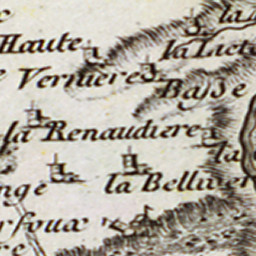 la
Haute
la Lict
Verniere
Basse
la Renaudiere
la
nge
la Belliver
rfoux
re